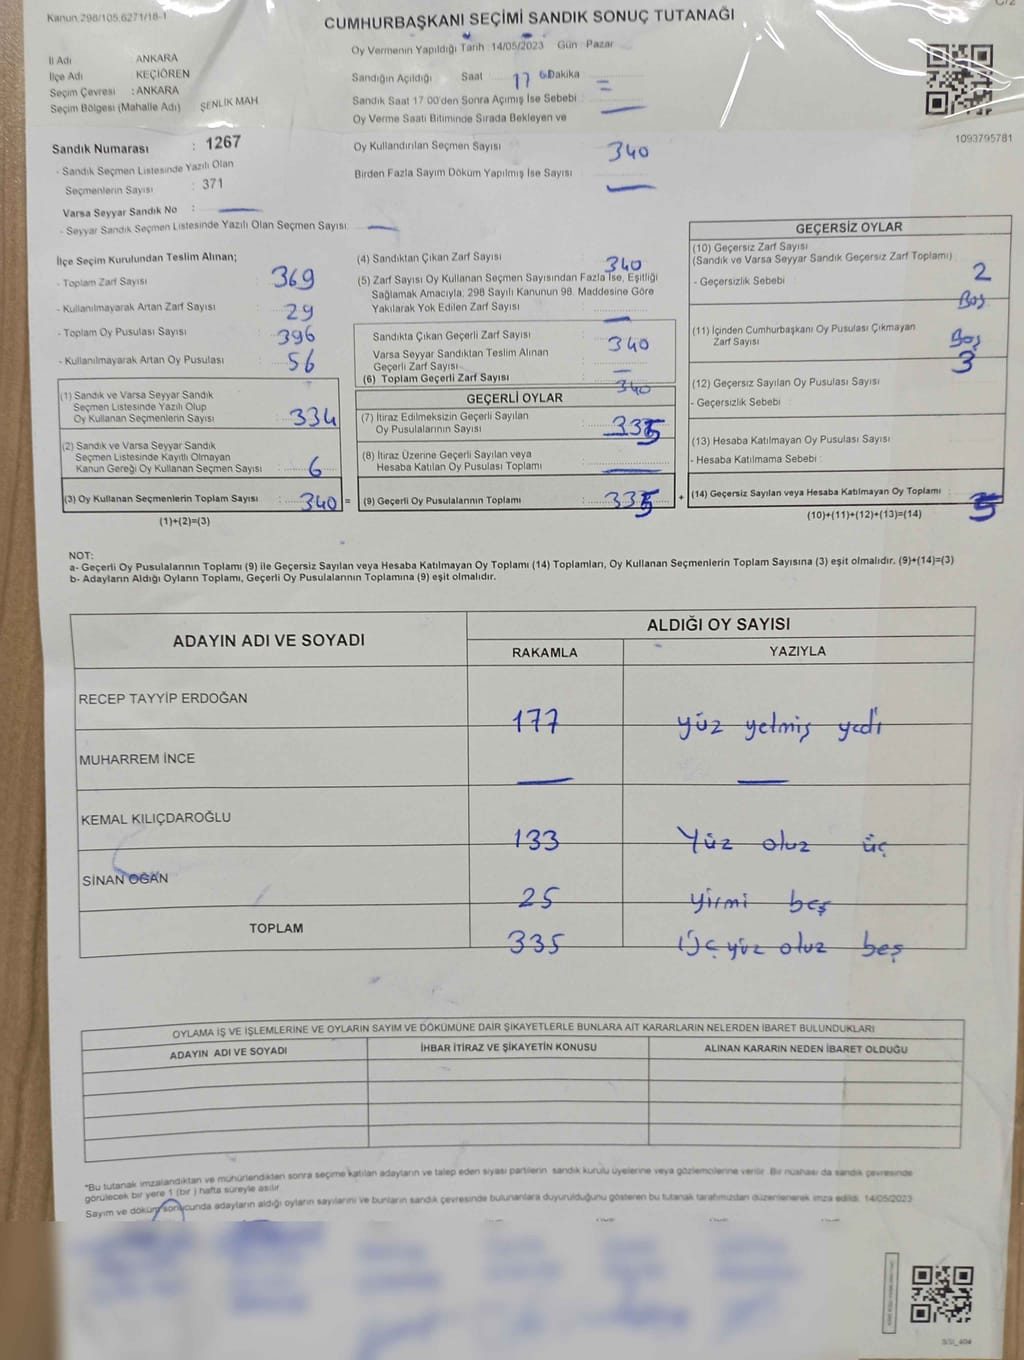 Kanun 298/105,6271/18-1
CUMHURBAŞKANI SEÇİMİ SANDIK SONUÇ TUTANAĞI
İl Adı : ANKARA
İlçe Adı : KEÇİÖREN
Seçim Çevresi : ANKARA
Seçim Bölgesi (Mahalle Adı) ŞENLİK MAH
Oy Vermenin Yapıldığı Tarih :14/05/2023 Gün :Pazar
Sandığın Açıldığı Saat 17 Dakika
Sandık Saat 17 00'den Sonra Açımış İse Sebebi
Oy Verme Saati Bitiminde Sırada Bekleyen ve
Oy Kullandırılan Seçmen Sayısı 340
Birden Fazla Sayım Döküm Yapılmış İse Sayısı —
1093795781
Sandık Numarası : 1267
- Sandık Seçmen Listesinde Yazılı Olan
Seçmenlerin Sayısı : 371
Varsa Seyyar Sandık No : —
- Seyyar Sandık Seçmen Listesinde Yazılı Olan Seçmen Sayısı: —
İlçe Seçim Kurulundan Teslim Alınan;
- Toplam Zarf Sayısı 369
- Kullanılmayarak Artan Zarf Sayısı 29
- Toplam Oy Pusulası Sayısı 396
- Kullanılmayarak Artan Oy Pusulası 56
(1) Sandık ve Varsa Seyyar Sandık
Seçmen Listesinde Yazılı Olup
Oy Kullanan Seçmenlerin Sayısı 334
(2) Sandık ve Varsa Seyyar Sandık
Seçmen Listesinde Kayıtlı Olmayan
Kanun Gereği Oy Kullanan Seçmen Sayısı 6
(3) Oy Kullanan Seçmenlerin Toplam Sayısı 340 =
(1)+(2)=(3)
(4) Sandıktan Çıkan Zarf Sayısı 340
(5) Zarf Sayısı Oy Kullanan Seçmen Sayısından Fazla İse, Eşitliği
Sağlamak Amacıyla, 298 Sayılı Kanunun 98. Maddesine Göre
Yakılarak Yok Edilen Zarf Sayısı —
Sandıkta Çıkan Geçerli Zarf Sayısı 340
Varsa Seyyar Sandıktan Teslim Alınan
Geçerli Zarf Sayısı —
(6) Toplam Geçerli Zarf Sayısı 340
GEÇERLİ OYLAR
(7) İtiraz Edilmeksizin Geçerli Sayılan
Oy Pusulalarının Sayısı 335
(8) İtiraz Üzerine Geçerli Sayılan veya
Hesaba Katılan Oy Pusulası Toplamı —
(9) Geçerli Oy Pusulalarının Toplamı 335 +
GEÇERSİZ OYLAR
(10) Geçersiz Zarf Sayısı
(Sandık ve Varsa Seyyar Sandık Geçersiz Zarf Toplamı) 2
- Geçersizlik Sebebi Boş
(11) İçinden Cumhurbaşkanı Oy Pusulası Çıkmayan
Zarf Sayısı Boş
3
(12) Geçersiz Sayılan Oy Pusulası Sayısı
- Geçersizlik Sebebi
(13) Hesaba Katılmayan Oy Pusulası Sayısı
- Hesaba Katılmama Sebebi :
(14) Geçersiz Sayılan veya Hesaba Katılmayan Oy Toplamı : 5
(10)+(11)+(12)+(13)=(14)
NOT:
a- Geçerli Oy Pusulalarının Toplamı (9) ile Geçersiz Sayılan veya Hesaba Katılmayan Oy Toplamı (14) Toplamları, Oy Kullanan Seçmenlerin Toplam Sayısına (3) eşit olmalıdır. (9)+(14)=(3)
b- Adayların Aldığı Oyların Toplamı, Geçerli Oy Pusulalarının Toplamına (9) eşit olmalıdır.
ADAYIN ADI VE SOYADI ALDIĞI OY SAYISI
RAKAMLA YAZIYLA
RECEP TAYYİP ERDOĞAN 177 yüz yetmiş yedi
MUHARREM İNCE — —
KEMAL KILIÇDAROĞLU 133 Yüz otuz üç
SİNAN OĞAN 25 yirmi beş
TOPLAM 335 Üç yüz otuz beş
OYLAMA İŞ VE İŞLEMLERİNE VE OYLARIN SAYIM VE DÖKÜMÜNE DAİR ŞİKAYETLERLE BUNLARA AİT KARARLARIN NELERDEN İBARET BULUNDUKLARI
ADAYIN ADI VE SOYADI İHBAR İTİRAZ VE ŞİKAYETİN KONUSU ALINAN KARARIN NEDEN İBARET OLDUĞU
*Bu tutanak imzalandıktan ve mühürlendikten sonra seçime katılan adayların ve talep eden siyasi partilerin sandık kurulu üyelerine veya gözlemcilerine verilir. Bir nüshası da sandık çevresinde
görülecek bir yere 1 (bir ) hafta süreyle asılır.
Sayım ve döküm sonucunda adayların aldığı oyların sayılarını ve bunların sandık çevresinde bulunanlara duyurulduğunu gösteren bu tutanak tarafımızdan düzenlenerek imza edildi. 14/05/2023